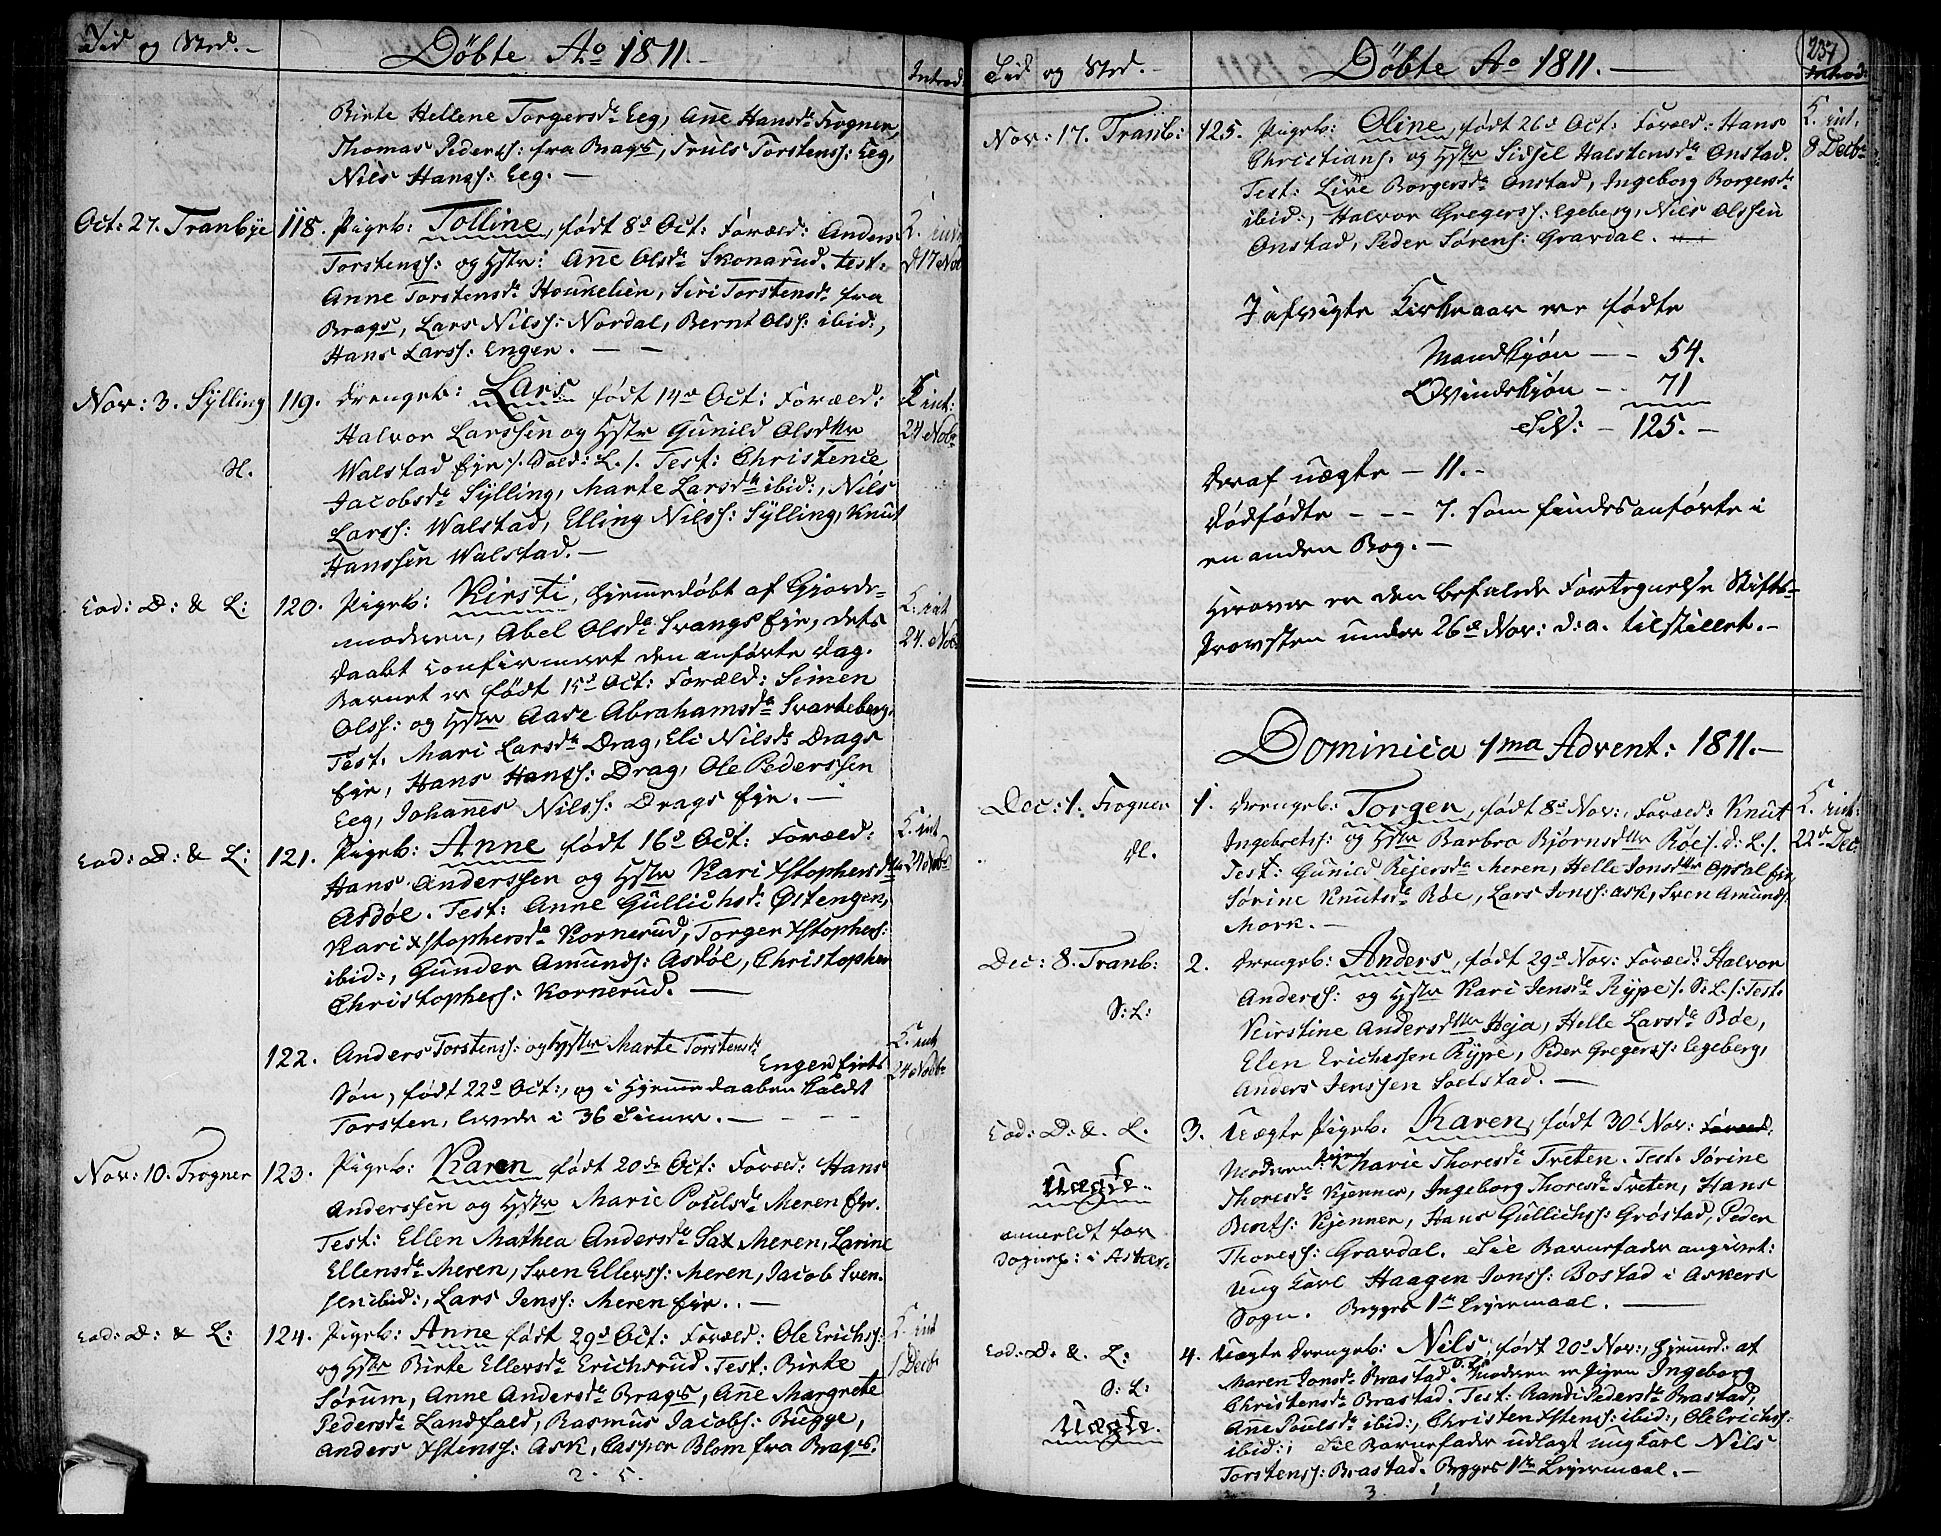 Tid og Sted.
Döbte Ao 1811.
Introd
Birte Hellene Torgersdr Eeg, Ane Hansdr Frogner,
Thomas Peders: fra Brags, Truls Torstens: Eeg,
Nils Hans: Eeg.
Oct: 27. Tranbye
118. Pigeb: Tolline, født 8de Oct: Foræld: Anders
Torstens: og Hstr: Ane Olsdr Skonarud. Test:
Anne Torstensdr Houkelien, Siri Torstensdr fra
Brags, Lars Nils: Nordal, Bernt Ols: ibid:,
Hans Lars: Enger.
K. int
d 17 Nov
Nov: 3. Sylling
119. Drengeb: Lars født 14de Oct: Foræld:
Halvor Larssen og Hstr Gunild Olsdttr
Walstad Eje /. Sold: L./. Test: Christence
Jacobsdr Sylling, Marte Larsdr ibid:, Nils
Lars: Walstad, Elling Nils: Sylling, Knut
Hanssen Walstad.
K int:
24 Nob
Eod: D: & L:
120. Pigeb: Kirsti, hjemmedøbt af Gjorde-
moderen, Abel Olsdr Svangs Eje, dets
Daabt confirmeret den anførte Dag.
Barnet er født 15de Oct: Foræld: Simen
Ols: og Hstr Aase Abrahamsdr Svarteberg.
Test. Mari Larsdr Drag, Eli Nilsdr Drags
Eje, Hans Hans: Drag, Ole Pederssen
Eeg, Johannes Nils: Drags Eje.
K. int
24. Nob
Eod: D: & L:
121. Pigeb: Anne født 16de Oct: Foræld:
Hans Anderssen og Hstr Kari Xstophersdttr
Asdøl. Test: Anne Gullichsdr Østengen,
Kari Xstophersdr Kornerud, Torger Xstophers:
ibid:, Gunder Amunds: Asdøl, Christopher
Christophers: Kornerud.
K. int
24 Nob
122. Anders Torstens: og Hstr Marte Torstensdr
Engen Ejets
Søn, født 22de Oct:, og i Hjemmedaaben kaldt
Torsten, levede i 36 Timer.
K. int
24 Nobr
Nov: 10. Frogner
123. Pigeb: Karen født 20de Oct: Foræld: Hans
Anderssen og Hstr Marie Poulsdr Meren Eje.
Test: Ellen Mathea Andersdr Sax Meren, Larine
Ellensdr Meren, Sven Ellers: Meren, Jacob Sven-
sen ibid:, Lars Jens: Meren Eje.
Eod: D: & L:
124. Pigeb: Anne født 29de Oct: Foræld: Ole Erichs:
og Hstr Birte Ellersdr Erichsrud. Test: Birte
Sørum, Anne Andersdr Brags, Ane Margrete
Pedersdr Landfald, Rasmus Jacobs: Bugge,
Anders Xstens: Ask, Casper Blom fra Brags.
K. int
1 Decb
2. 5.
Tid og Sted.
Döbte Ao 1811.
237
Introd:
Nov: 17. Tranb:
125. Pigeb: Oline, født 26de Oct: Foræld: Hans
Christians: og Hstr Sissel Halstensdr Onstad.
Test: Live Borgersdr Onstad, Ingeborg Borgersdr
ibid:, Halvor Gregers: Egeberg, Nils Olssen
Onstad, Peder Sørens: Gravdal.
K. int.
8 Decbr
I afvigte Kirkeaar ere fødte
Mandkjøn - - 54.
Qvindekjøn - - 71
Til: - 125.
Deraf uægte - 11.
Dødfødte - - - 7. som findes anførte i
en anden Bog.
Herover er den befalede Fortegnelse Stifts-
Provsten under 26de Nov: d: a. tilstillet.
Dominica 1ma Advent: 1811.
Dec: 1. Frogner
1. Drengeb: Torger, født 8de Nov:, Foræld: Knut
Ingebrets: og Hstr Barbro Bjørnsdttr Röe /. d: L./.
Test: Gunild Rejersdr Meren, Helle Jonsdttr Opsal Eje,
Sørine Knutsdr Röe, Lars Jons: Ask, Sven Amunds:
Mork.
K. int:
22de Dec.
Dec: 8. Tranb:
S: L:
2. Drengeb: Anders, født 29de Nov: Foræld: Halvor
Anders: og Hstr Kari Jensdr Rype /. S: L./: Test:
Kirstine Andersdttr Heja, Helle Larsdr Böe,
Elen Erichssen Rype, Peder Gregers: Egeberg,
Anders Jenssen Solstad.
Eod: D: & L.
Uægte.
anmeldt for
Sognepr: i Asker
3. Uægte Pigeb: Karen, født 30te Nov: Foræld:
Moderen Pigen Marie Thoresdr Treten. Test: Jörine
Thoresdr Kjenner, Ingeborg Thoresdr Treten, Hans
Bents: Kjenner, Hans Gullichs: Gröstad, Peder
Thores: Gravdal. Til Barnefader angivet:
Ung Karl Haagen Jons: Bostad i Askers
Sogn. Begges 1ste Lejermaal.
Eod: D. & L:
S: L:
Uægte.
4. Uægte Drengeb: Nils, født 20de Nov:, hjemmed: af
Maren Jonsdr Brastad. Moderen er Pigen Ingeborg
Christensdr Brastad. Test: Randi Pedersdr Brastad,
Ane Poulsdr ibid:, Christen Xstens: ibid:, Ole Erichs:
ibid:, Til Barnefader udlagt ung Karl Nils
Torstens: Brastad. Begges 1ste Lejermaal.
3. 1